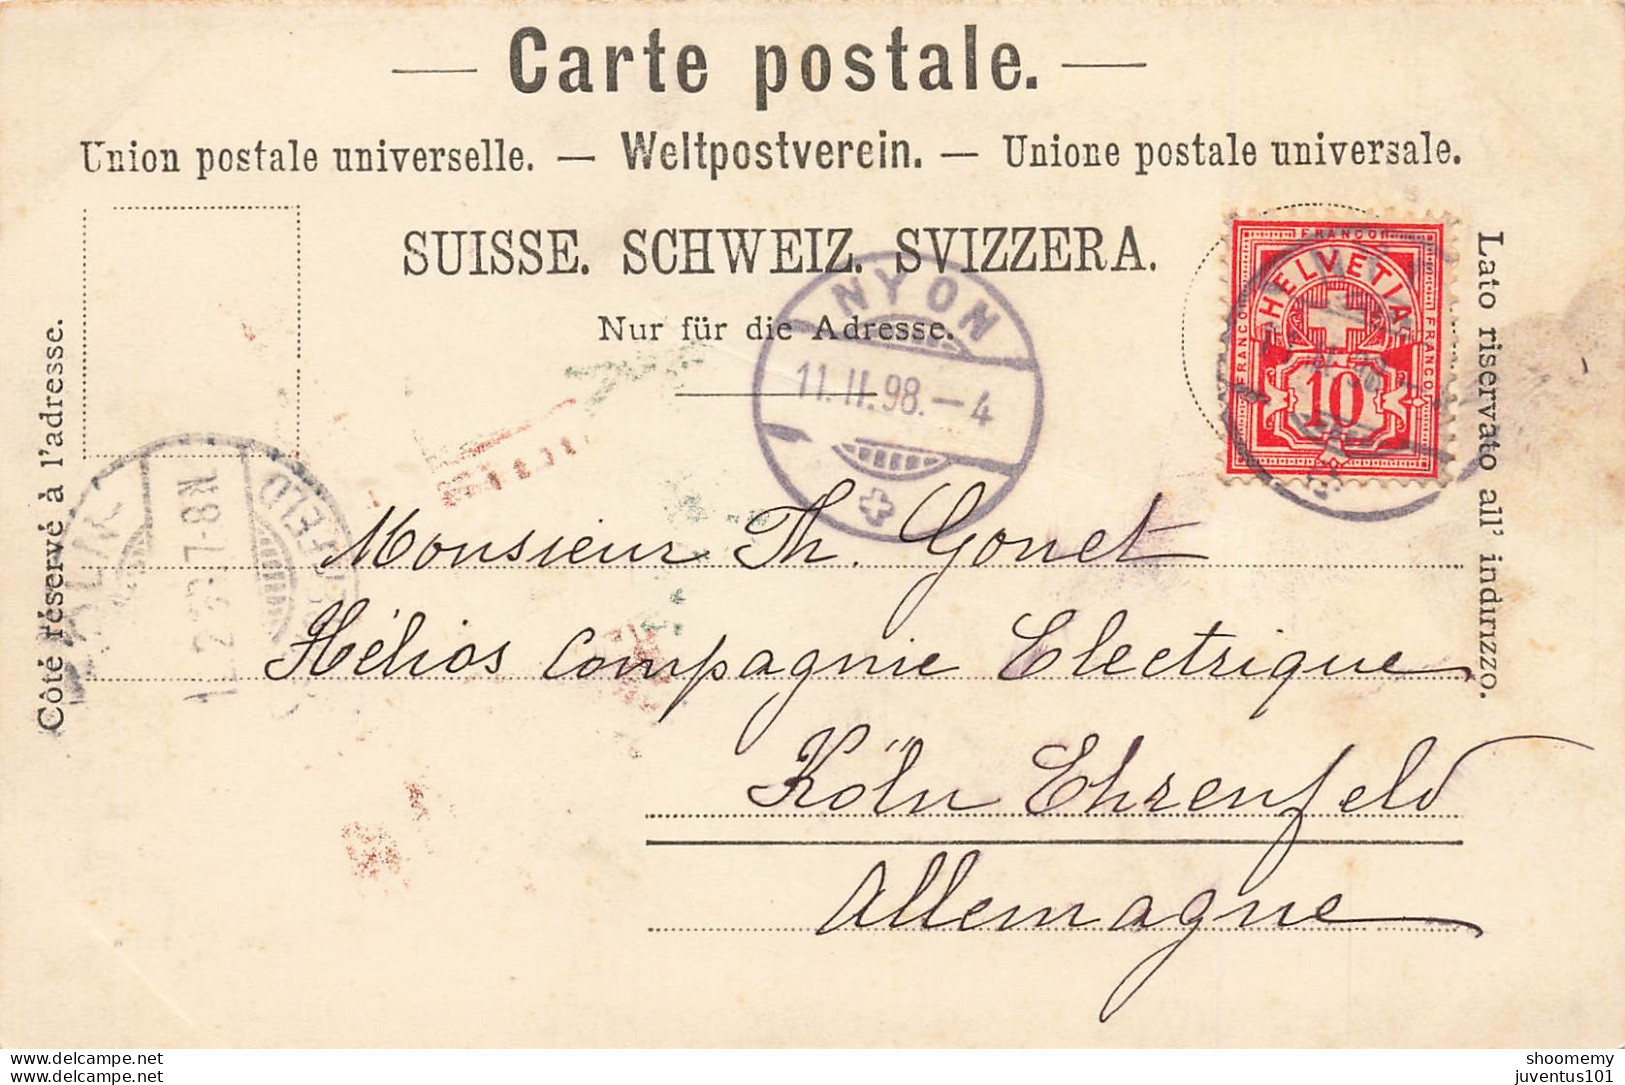 Carte postale.
Union postale universelle. — Weltpostverein. — Unione postale universale.
SUISSE. SCHWEIZ. SVIZZERA.
Nur für die Adresse.
Côté réservé à l'adresse.
Lato riservato all' indirizzo.
FRANCO
HELVETIA
FRANCO
FRANCO
10
NYON
11.II.98.-4
7-8N
Monsieur Th. Gonet
Hélios Compagnie Electrique
Köln Ehrenfeld
Allemagne
delcampe.net
delcampe.net
shoomemy
juventus101